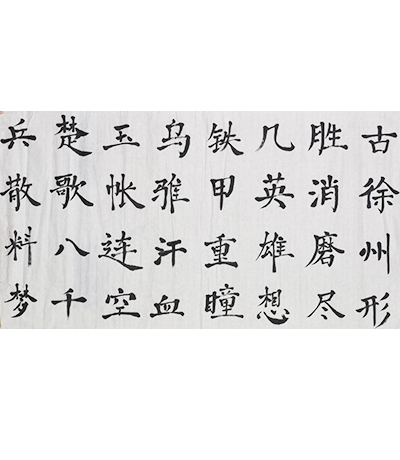 古徐州形
胜消磨尽
几英雄想
铁甲重瞳
乌骓汗血
玉帐连空
楚歌八千
兵散料梦